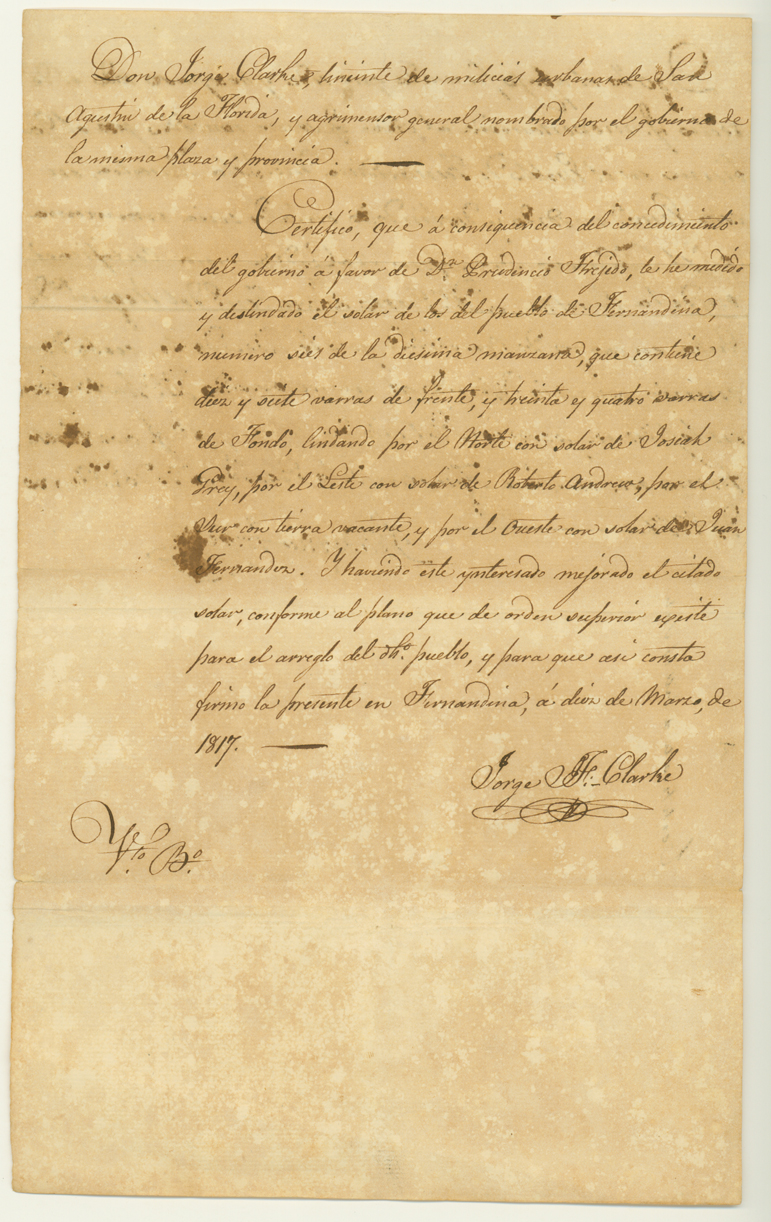 Don Jorge Clarke, teniente de milicias urbanas de San
Agustin de la Florida, y agrimensor general nombrado por el gobierno de
la misma plaza y provincia.
Certifico, que á consequencia del concedimiento
del gobierno á favor de Dn Prudencio Trejido, le he medido
y deslindado el solar de los del pueblo de Fernandina,
numero sies de la diesima manzana, que contiene
diez y siete varras de frente, y treinta y quatro varras
de Fondo, lindando por el Norte con solar de Josiah
Prey, por el Leste con solar de Roberto Andrew, por el
Sur con tierra vacante, y por el Oueste con solar de Juan
Fernandez. Y haviendo este ynteresado mejorado el citado
solar, conforme al plano que de orden superior existe
para el arreglo del dho. pueblo, y para que asi consta
firmo la presente en Fernandina, á diez de Marzo, de
1817.
Jorge J. F. Clarke
Vto. Bo.